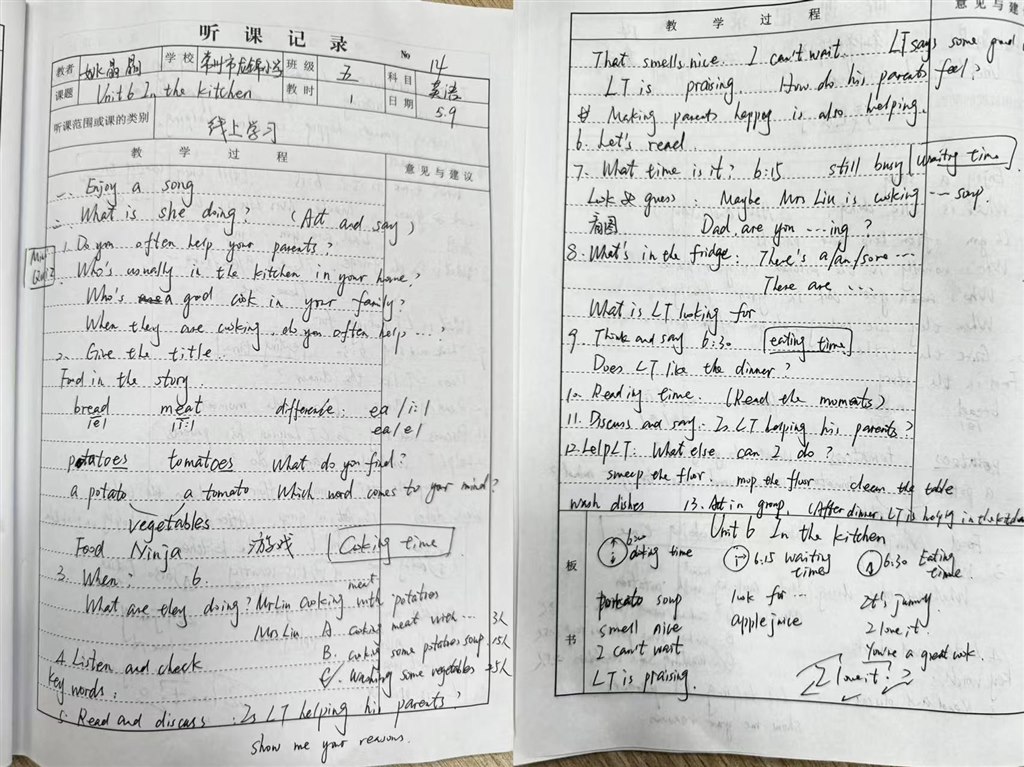 听课记录
No 14
教者 姚晶晶 学校 常州市龙锦小学 班级 五 科目 英语
课题 Unit 6 In the kitchen 教时 1 日期 5.9
听课范围或课的类别 线上学习
教 学 过 程 意见与建议
一. Enjoy a song
二. What is she doing? (Act and say)
1. Do you often help your parents?
2. Who's usually in the kitchen in your home?
Who's a good cook in your family?
When they are cooking, do you often help ...?
2. Give the title.
Food in the story.
bread meat difference: ea /i:/
/e/ /i:/ ea /e/
potatoes tomatoes What do you find?
a potato a tomato Which word comes to your mind?
vegetables
Food Ninja 游戏 Cooking time
3. When? 6.
meat
What are they doing? Mr Lin cooking with potatoes
Mrs Liu A. cooking meat with ... 3人
B. cooking some potatoes soup 15人
4. Listen and check C. Washing some vegetables 25人
key words:
5. Read and discuss: Is LT helping his parents?
show me your reasons.
教 学 过 程 意见与建
That smells nice. I can't wait... LT says some good
LT is praising. How do his parents feel?
Making parents happy is also helping.
6. Let's read
7. What time is it? 6:15 still busy waiting time
Look & guess: Maybe Mrs Liu is cooking ... soup.
看图 Dad, are you ...ing?
8. What's in the fridge: There's a/an/some ...
There are ...
What is LT looking for
9. Think and say 6:30 eating time
Does LT like the dinner?
10. Reading time. (Read the moments)
11. Discuss and say: Is LT helping his parents?
12. Help LT: What else can I do?
sweep the floor. mop the floor clean the table
wash dishes 13. Act in group. (After dinner, LT is helping in the kitchen
板书
Unit 6 In the kitchen
6:00 cooking time 6:15 waiting time 6:30 Eating time.
potato soup look for ... It's yummy
smell nice apple juice I love it.
I can't wait You're a great cook.
LT is praising. I love it?